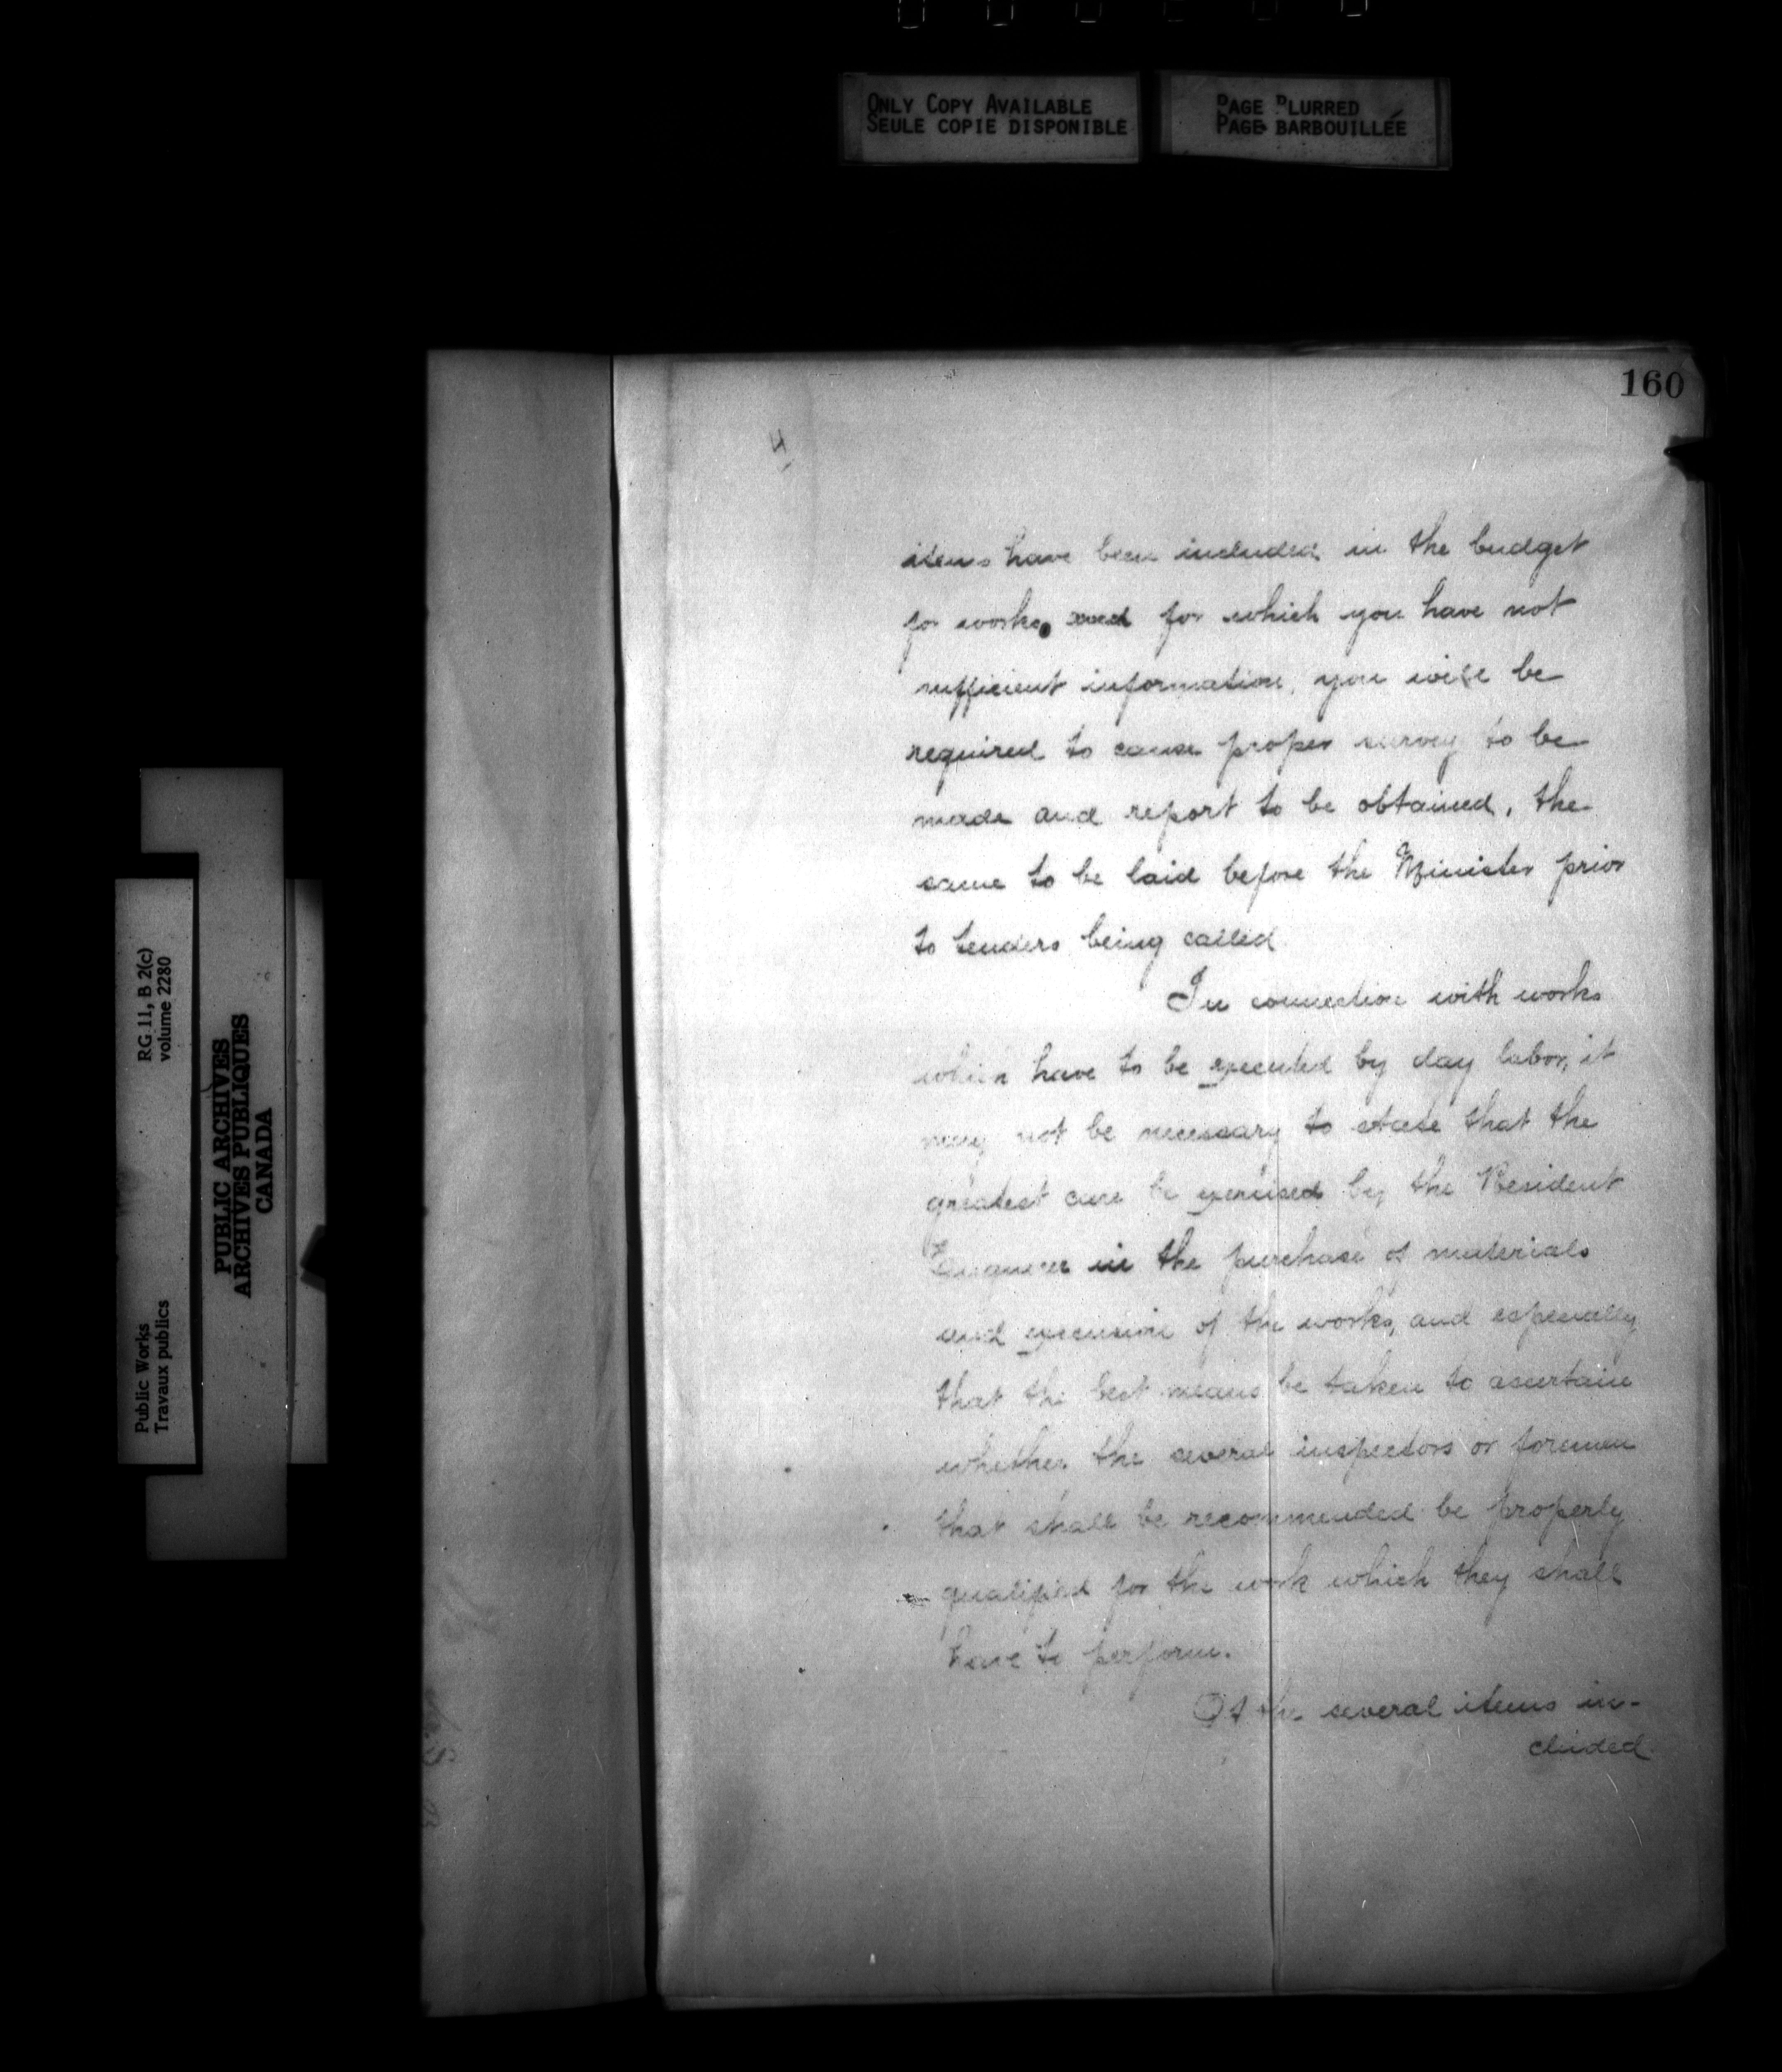 ONLY COPY AVAILABLE
SEULE COPIE DISPONIBLE
PAGE BLURRED
PAGE BARBOUILLÉE
160
4
items have been included in the budget
for works, and for which you have not
sufficient information, you will be
required to cause proper survey to be
made and report to be obtained, the
same to be laid before the Minister prior
to tenders being called
In connection with works
which have to be executed by day labor, it
may not be necessary to state that the
greatest care be exercised by the Resident
Engineer in the purchase of materials
and execution of the works, and especially
that the best means be taken to ascertain
whether the several inspectors or foremen
that shall be recommended be properly
qualified for the work which they shall
have to perform.
Of the several items in-
cluded
RG 11, B 2(c)
volume 2280
PUBLIC ARCHIVES
ARCHIVES PUBLIQUES
CANADA
Public Works
Travaux publics